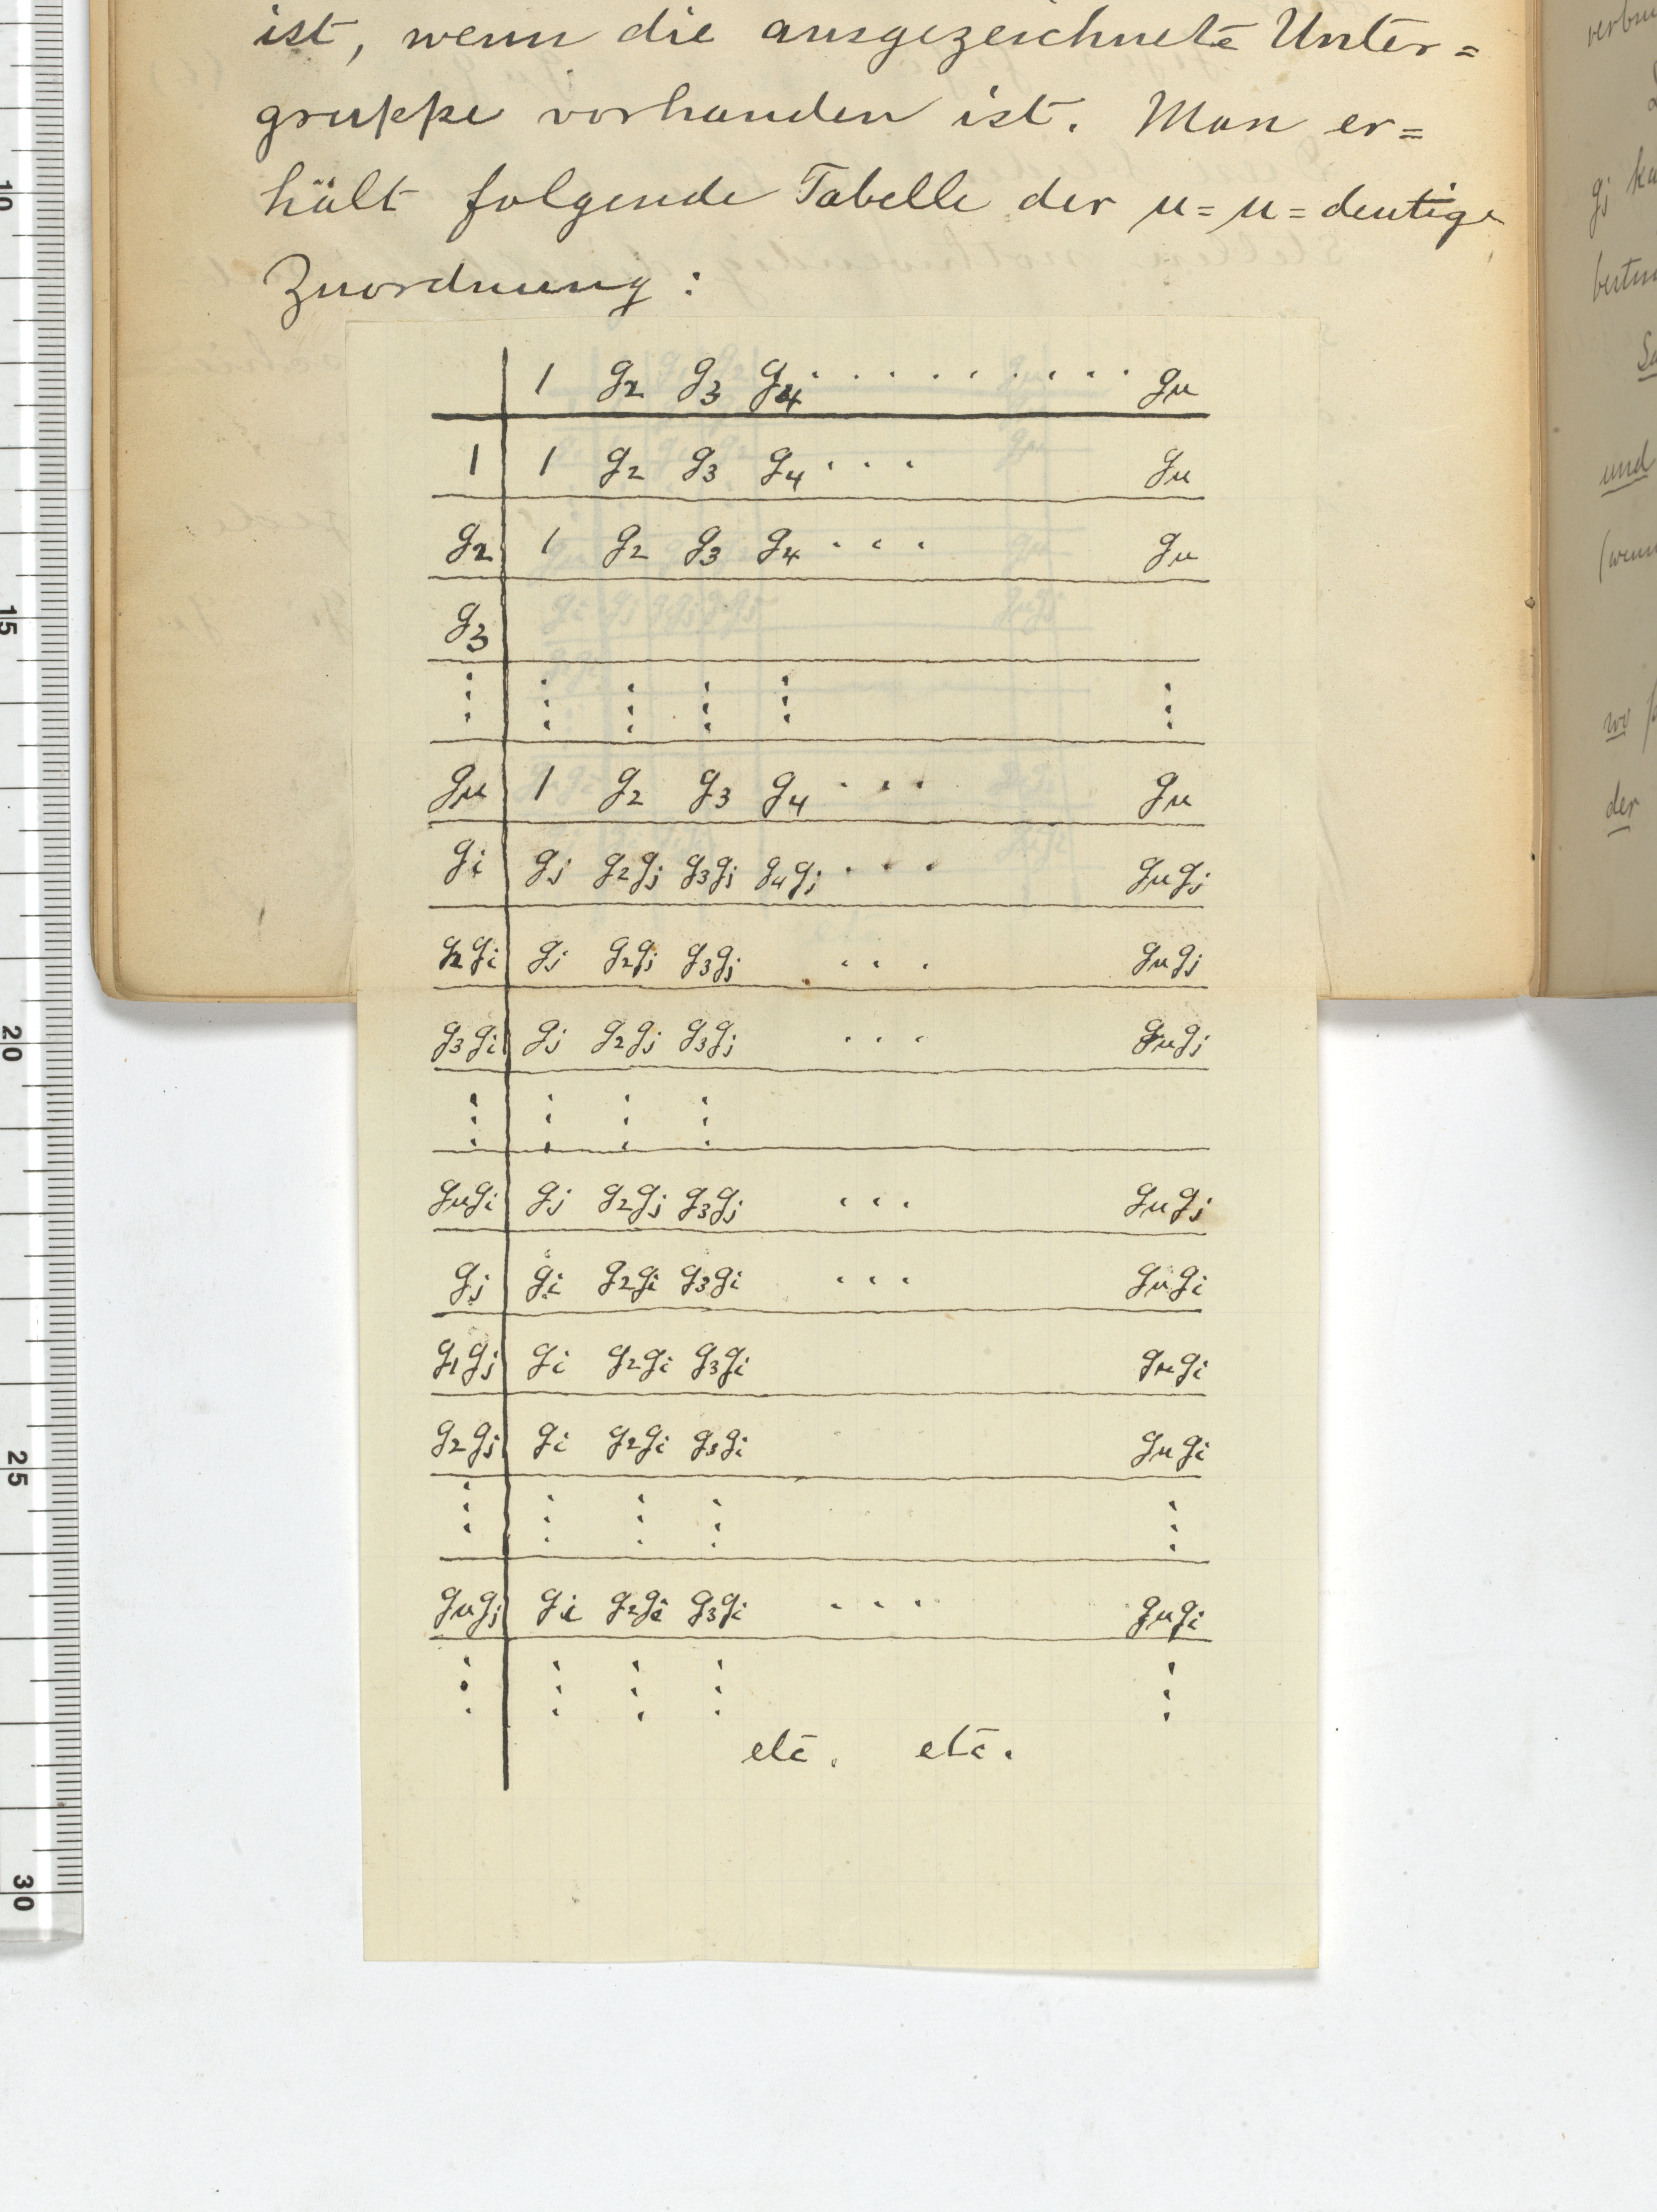 ist, wenn die ausgezeichnete Unter=
gruppe vorhanden ist. Man er=
hält folgende Tabelle der u=u=deutige
Zuordnung:
1 g2 g3 g4 . . . . . . . . . gu
1 1 g2 g3 g4 . . . gu
g2 1 g2 g3 g4 . . . gu
g3
⋮ ⋮ ⋮ ⋮ ⋮ ⋮
gu 1 g2 g3 g4 . . . gu
gi gj g2gj g3gj g4gj . . . gugj
g2gi gj g2gj g3gj . . . gugj
g3gi gj g2gj g3gj . . . gugj
⋮ ⋮ ⋮ ⋮
gugi gj g2gj g3gj . . . gugj
gj gi g2gi g3gi . . . gugi
g1gj gi g2gi g3gi gugi
g2gj gi g2gi g3gi gugi
⋮ ⋮ ⋮ ⋮ ⋮
gugj gi g2gi g3gi . . . gugi
⋮ ⋮ ⋮ ⋮ ⋮
etc. etc.
gj
und
(wenn
wo
der
10
15
20
25
30